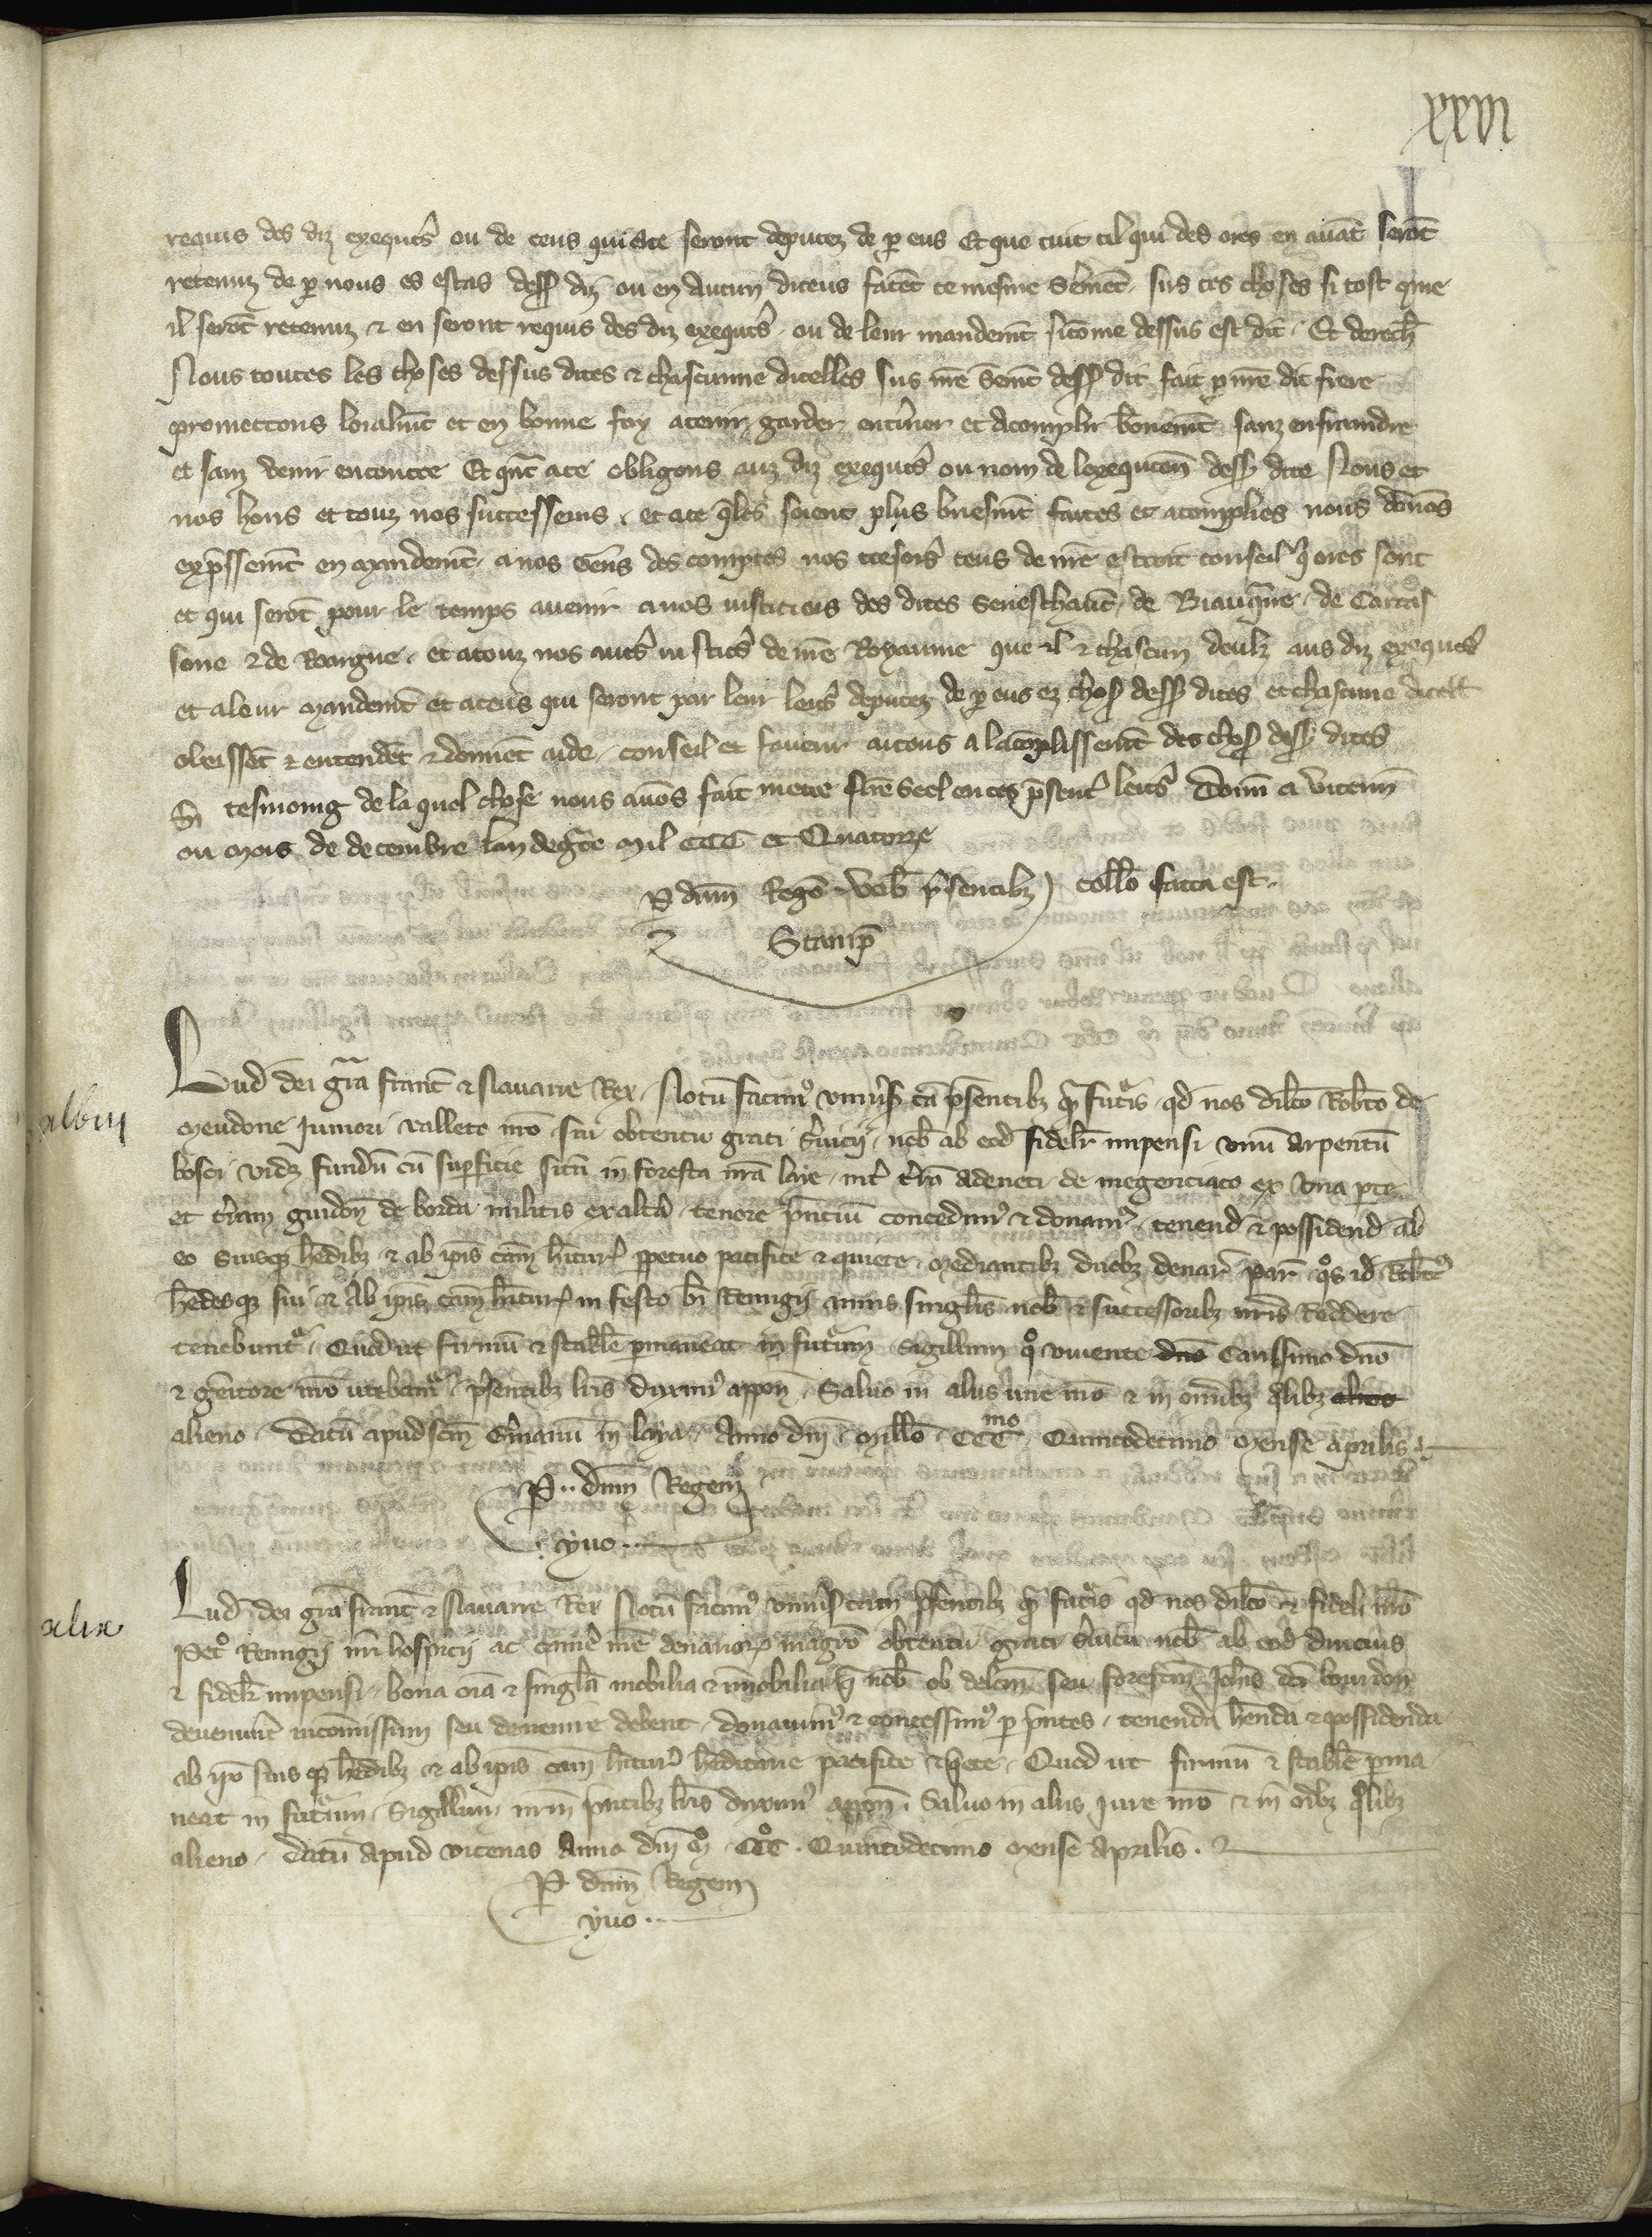 xxvi
requis des diz exequts ou de ceus qui ace seront deputez de p eus Et que tuit cil qui des ores en auāt serōt
retenuz de p nous es estas dess diz ou en Aucun diceus facēt ce mesme Sermēt sus ces choses si tost que
il serōt retenuz & en seront requis des diz exequts ou de leur mandemt sicōme dessus est dit Et derech
Nous toutes les choses dessus dites & chascune dicelles sus nrē Semt dess dit fait p nrē dit frere
promettons loialmt et en bonne foy a tenir garder entiner et acomplir bōnemt sanz enfraindre
et sanz venir encontre Et qnt ace obligons auz diz exequts ou nom de lexequcōn dess dite Nous et
nos hoirs et touz nos successeurs et ace q̄ les soient plus briesmt faites et acomplies nous dōnōs
exp̄ssemt en mandemt a nos Gens des comptes nos tresors ceus de nrē estroit conseil q̄ ores sont
et qui serōt pour le temps auenir a nos iusticiers des dites Seneschauc de Biauq̄ire de Carcas
sone & de Roergue et atouz nos auts iustics de nrē Royaume que il & chascun deulz aus diz exequts
et aleur mandemt et aceus qui seront par leur letrs deputez de p eus ez chos dess dites et chascune dicell
obeissēt & entendēt & donnēt aide conseil et faueur a tous a lacōplissemt des chos dess dites
En tesmoing de la quel chose nous auōs fait mettre nrē Seel en ces p̄sent letrs Donn a vicenn
ou mois de decembre lan de grce mil CCC et Quatorze
P dnm Regē Vob p̄sentibz collō facta est
Stamp̄
xlviii
Lud dei grā franc & Nauarre Rex Notū facim9 vniuis tā p̄sentibz q̄ futis qd nos dilcō Robto de
Meudone Juniori valleto nrō sui obtentu grati Seruicii nob ab eod fidelr impensi vnū arpentū
bosci vidz fundū cū supficie sitū in foresta nrā laye int trā Adeneti de megenciaco ex vna pte
et trām guidon de borda militis ex altā tenore p̄ntiū concedim9 & donam9 tenend & possidend ab
eo suisq hedibz & ab ipis cam hitur ppetuo pacifice & quiete mediantibz duobz denar par q̄s id Robt9
hedesq sui & ab ipis cam hitur in festo bi Remigii annis singlis nob & successoribz nris Reddere
tenebunt Quod ut firmū & stabile pmaneat in futurum sigillum q̊ viuente dno Carissimo dno
& genitore nro utebam p̄sentibz lris duxim9 appon Saluo in aliis iure nro & in omibz qlibz alieo
alieno Datū apud scm Germanū in laya Anno dni Millō CCCmo Quintodecimo mense aprilis
P dnm Regem
yuo
xlix
Lud dei grā franc & Nauarre Rex Notū facim9 vniuis tam p̄sentibz q̄ futis qd nos dilcō & fideli nrō
Petro Remigii nri hospicii ac camē nrē denarior magrō obtentu grati seruicii nob ab eod diucius
& fidelr impensi bona oia & singlā mobilia & immobilia q̄ nob ob delcm seu forefcm Johis dci bourdon
deuenert incomissum seu deuenire debent donauim9 & concessim9 p p̄ntes tenenda henda & possidenda
ab ipo suis q hedibz & ab ipis cam hitur heditarie pacifice & qete Quod ut firmū & stabile pma
neat in futurum Sigillum nrm p̄ntibz lris duxim9 appon Saluo in aliis Jure nro & in oibz qlibz
alieno Datū apud vicenas Anno dni M̊ CC̊C Quintodecimo mense aprilis
P dnm Regem
yuo